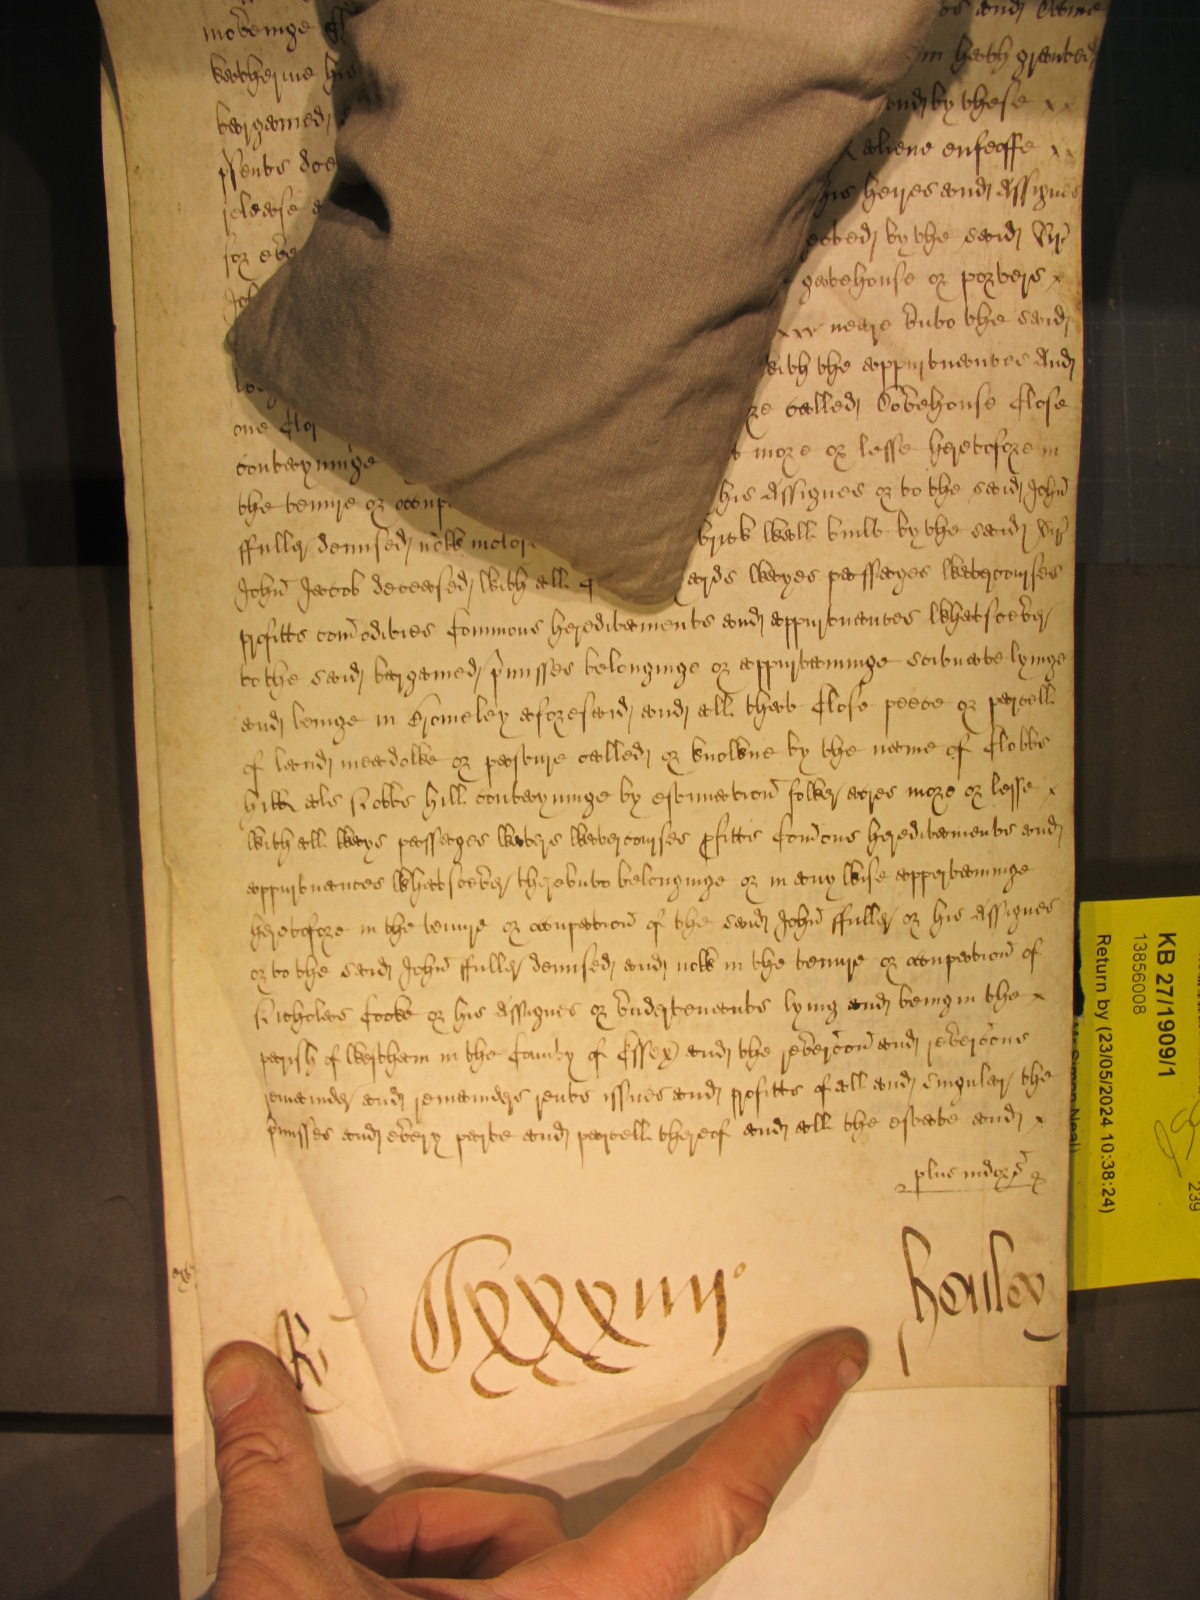 movinge
os and Came
Katherine his
in hath granted
bargained
and by these
psents doe
aliene enfeoffe
release
his heires and Assignes
for ever
ected by the said Sir
gatehouse or porters
neare unto the said
with the appurtenances And
one Clos
called Dovehouse Close
contayninge
more or lesse heretofore in
the tenure or occup
his Assignes or to the said John
ffuller demised now
brick wall built by the said Sir
John Jacob deceased with all
wayes passages watercourses
profitts comodities Commons hereditaments and appurtenances whatsoever
to the said bargained pmisses belonginge or appurtaininge scituate lyinge
and beinge in Bromeley aforesaid and all that Close peece or parcell
of land meadowe or pasture called or knowne by the name of Clobbs
hill als Nobbs hill contayninge by estimation fower acres more or lesse
with all ways passages waters watercourses pfitts Comons hereditaments and
appurtenances whatsoever thereunto belonginge or in any wise appertaininge
heretofore in the tenure or occupation of the said John ffuller or his Assignes
or to the said John ffuller demised and now in the tenure or occupation of
Nicholas Cooke or his Assignes or undertenants lying and being in the
parish of Westham in the County of Essex and the revercon and revercons
remainder and remainders rents issues and profitts of all and singular the
pmisses and every parte and parcell thereof and all the estate and
plus indors
R
Cxxxiiij
Henley
KB 27/1909/1
13856008
Return by (23/05/2024 10:38:24)
239